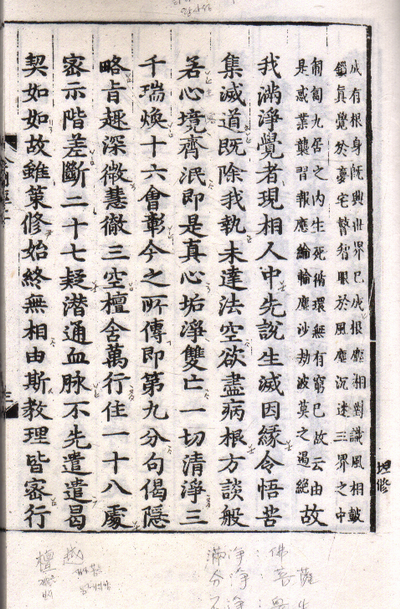 成有根身旣興世界已成根塵相對識風相皷
鎻眞覺於夢宅瞽智眼於風塵沉迷三界之中
匍匐九居之内生死循環無有窮已故云由
是惑業襲習報應綸輪塵沙劫波莫之遏絶 故
我滿淨覺者現相人中先說生滅因緣令悟苦
集滅道既除我執未達法空欲盡病根方談般
若心境齊泯即是真心垢淨雙亡一切清淨三
千瑞煥十六會彰今之所傳即第九分句偈隱
略旨趣深微慧徹三空檀含萬行住一十八處
密示階差斷二十七疑潜通血脉不先遣遣曷
契如如故雖策修始終無相由斯教理皆密行
三
滿淨：佛
分淨：菩薩
不淨：
檀